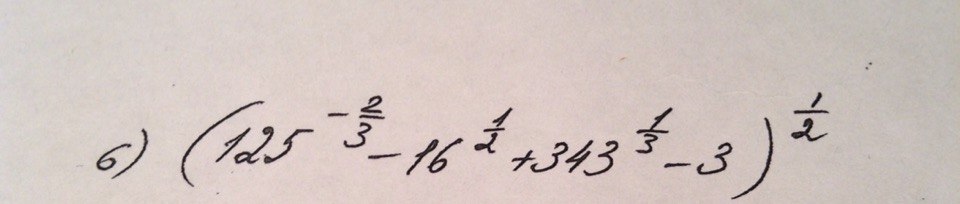 б) (125^{-\frac{2}{3}} - 16^{\frac{1}{2}} + 343^{\frac{1}{3}} - 3)^{\frac{1}{2}}